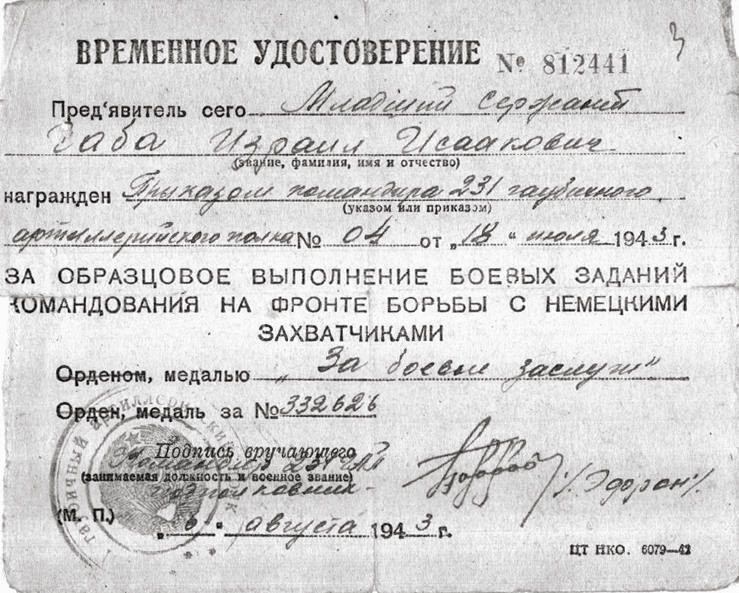 3
ВРЕМЕННОЕ УДОСТОВЕРЕНИЕ № 812441
Пред'явитель сего Младший сержант
Чаба Израил Исаакович
(звание, фамилия, имя и отчество)
награжден Приказом командира 231 гаубичного
(указом или приказом)
артиллерийского полка № 04 от „18" июля 1943 г.
ЗА ОБРАЗЦОВОЕ ВЫПОЛНЕНИЕ БОЕВЫХ ЗАДАНИЙ
КОМАНДОВАНИЯ НА ФРОНТЕ БОРЬБЫ С НЕМЕЦКИМИ
ЗАХВАТЧИКАМИ
Орденом, медалью „За боевые заслуги"
Орден, медаль за № 332626
Подпись вручающего
Командир 231 ГАП
(занимаемая должность и военное звание)
подполковник
(М. П.)
„6" августа 1943 г.
ЦТ НКО. 6079—42